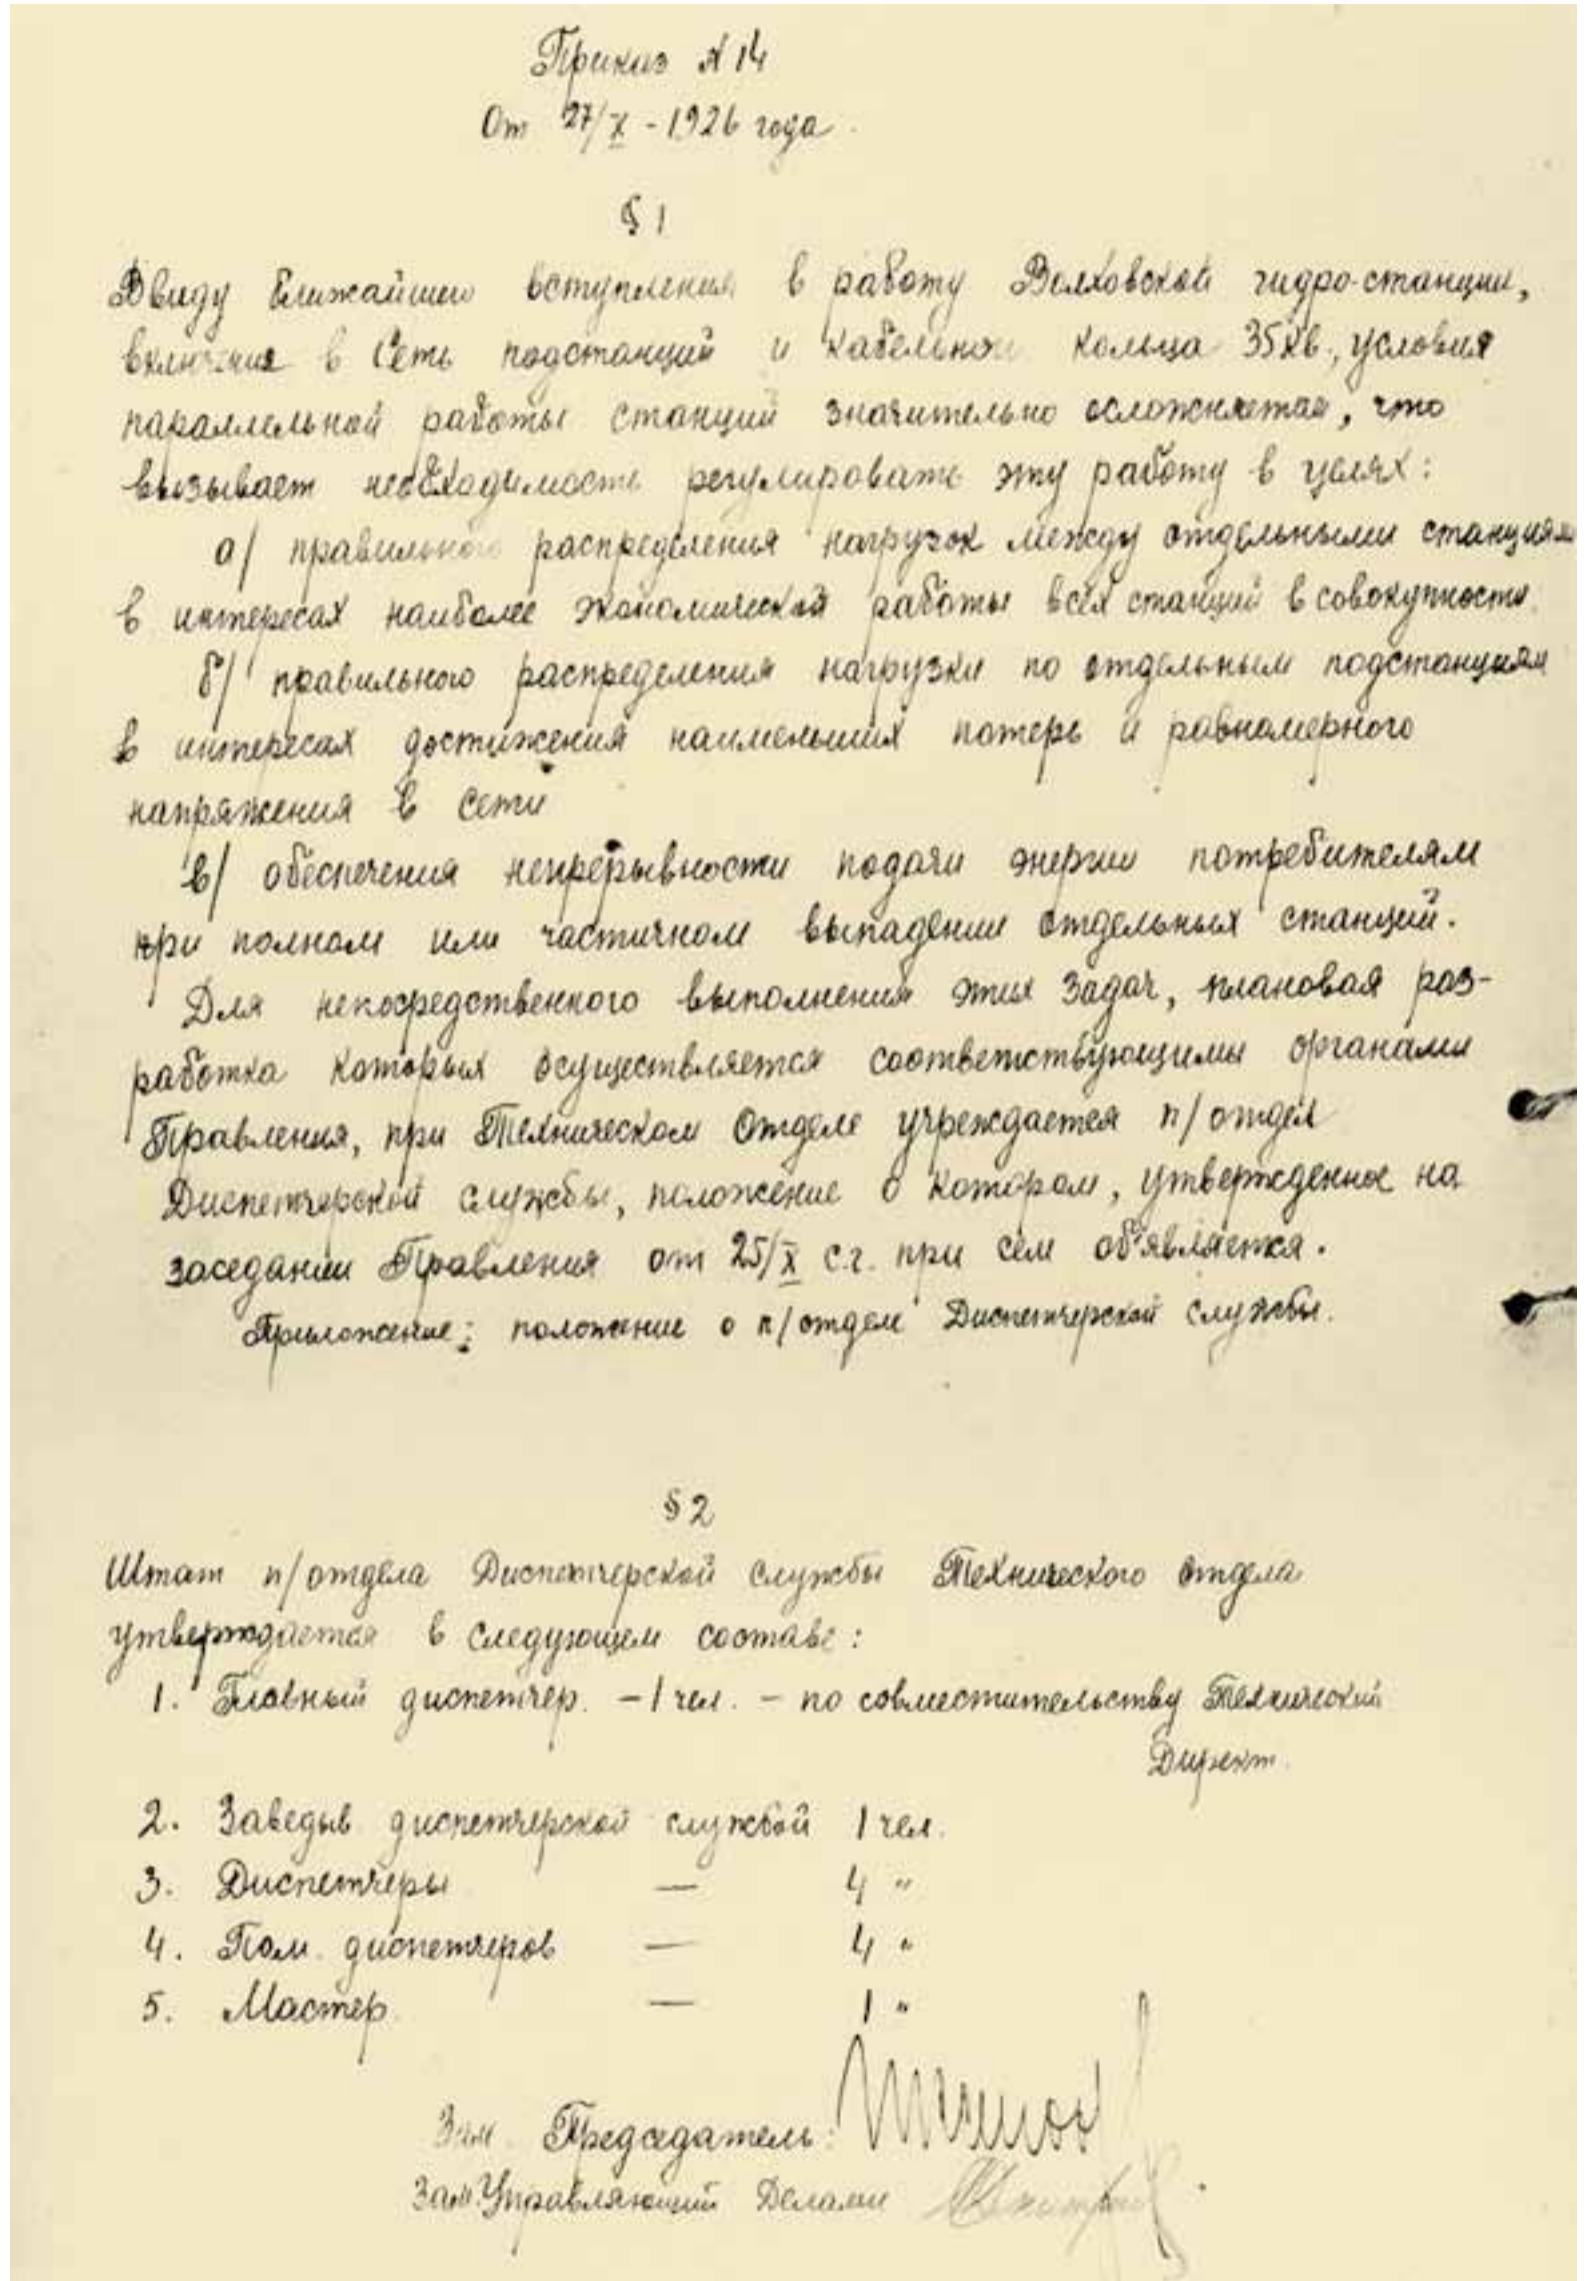 Приказ № 14
От 27/X - 1926 года
§ 1
Ввиду ближайшего вступления в работу Волховской гидро-станции,
включения в Сеть подстанций и кабельного кольца 35 кв., условия
параллельной работы станций значительно осложняется, что
вызывает необходимость регулировать эту работу в целях:
а/ правильного распределения нагрузок между отдельными станциями
в интересах наиболее экономической работы всех станций в совокупности
б/ правильного распределения нагрузки по отдельным подстанциям
в интересах достижения наименьших потерь и равномерного
напряжения в сети
в/ обеспечения непрерывности подачи энергии потребителям
при полном или частичном выпадении отдельных станций.
Для непосредственного выполнения этих задач, плановая раз-
работка которых осуществляется соответствующими органами
Правления, при Техническом Отделе учреждается п/отдел
Диспетчерской службы, положение о котором, утвержденное на
заседании Правления от 25/X с.г. при сем об'является.
Приложение: положение о п/отделе Диспетчерской службы.
§ 2
Штат п/отдела Диспетчерской службы Технического отдела
утверждается в следующем составе:
1. Главный диспетчер. - 1 чел. - по совместительству Технический
Директ.
2. Заведыв диспетчерской службой 1 чел.
3. Диспетчеры — 4 "
4. Пом. диспетчеров — 4 "
5. Мастер — 1 "
Зам. Председатель:
Зам. Управляющий Делами